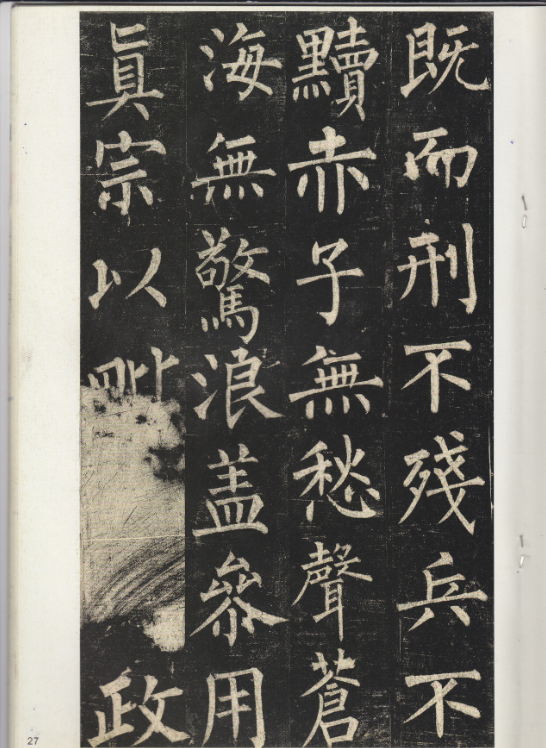 既而刑不殘兵不
黷赤子無愁聲蒼
海無驚浪盖叅用
眞宗以政
27